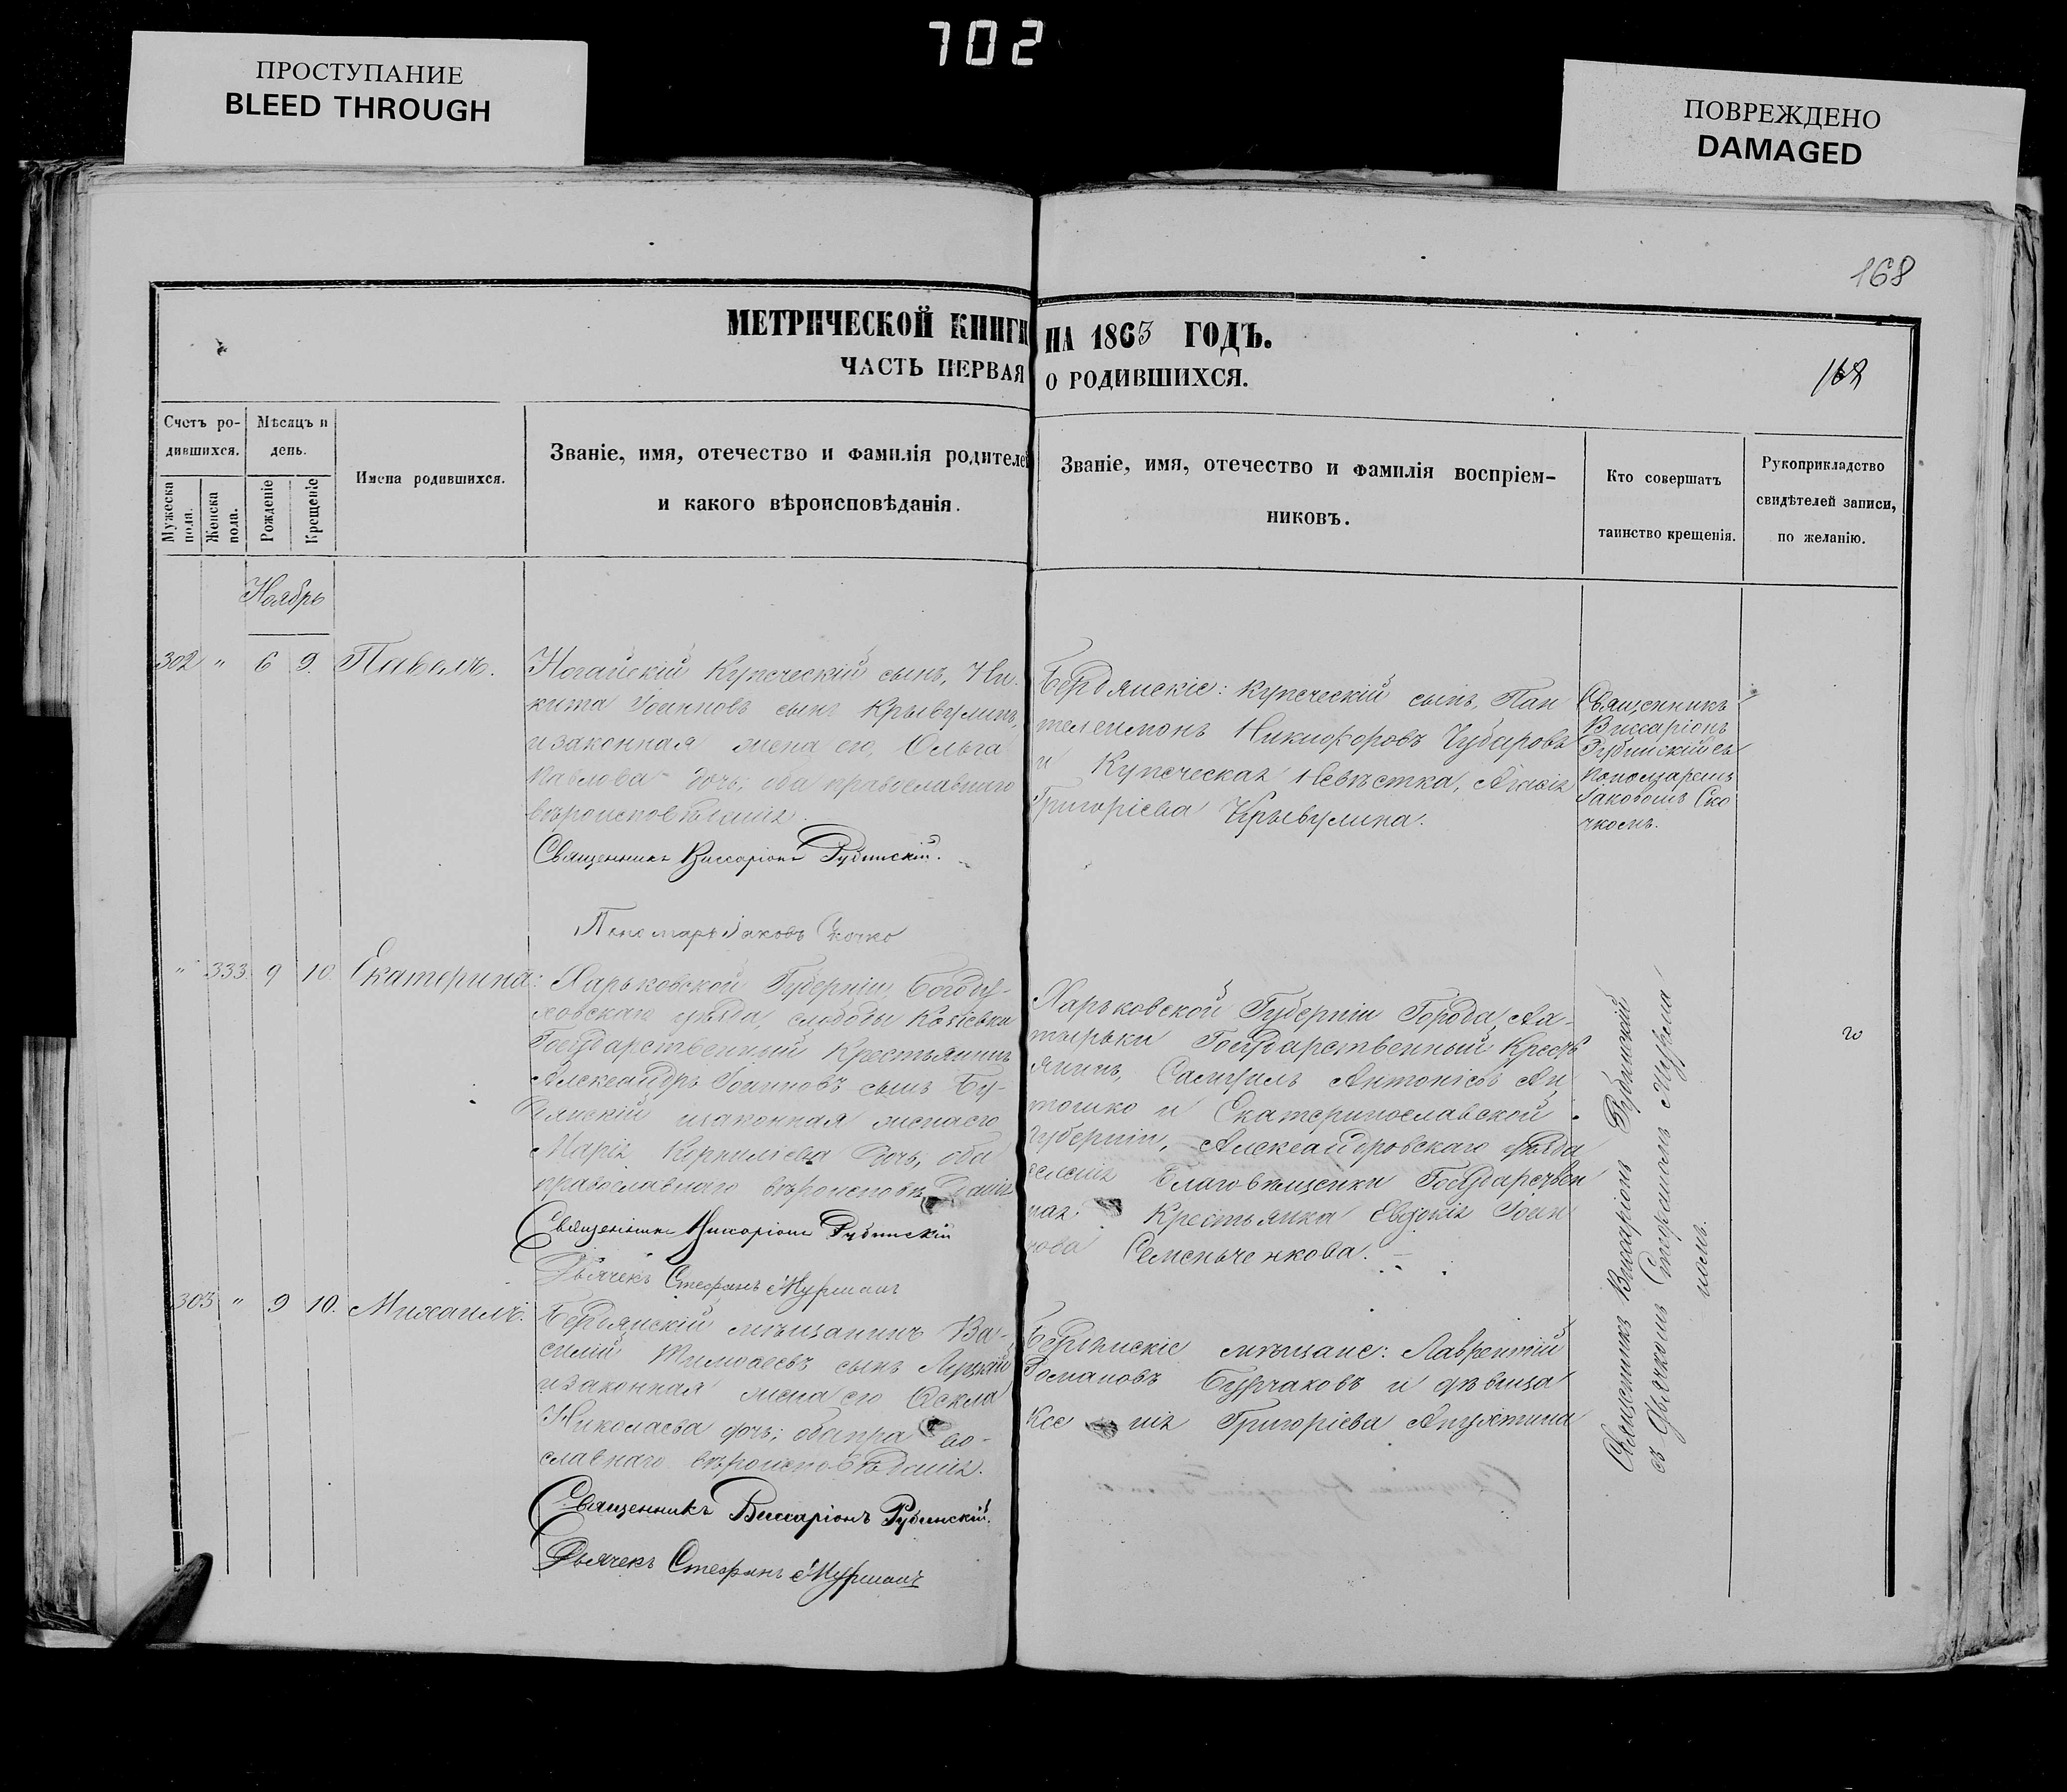 702
ПРОСТУПАНИЕ
BLEED THROUGH
ПОВРЕЖДЕНО
DAMAGED
168
МЕТРИЧЕСКОЙ КНИГИ НА 1863 ГОДЪ.
ЧАСТЬ ПЕРВАЯ О РОДИВШИХСЯ.
168
Счетъ ро-
дившихся.
Мужеска
пола.
Женска
пола.
Мѣсяцъ и
день.
Рожденіе
Крещеніе
Имена родившихся.
Званіе, имя, отечество и фамилія родителей
и какого вѣроисповѣданія.
Званіе, имя, отечество и фамилія воспріем-
никовъ.
Кто совершатъ
таинство крещенія.
Рукоприкладство
свидѣтелей записи,
по желанію.
Ноябрь
302 " 6 9. Павелъ.
Ногайскій Купеческій сынъ, Ни-
кита Іоанновъ сынъ Крывулинъ,
и законная жена его, Ольга
Павлова дочь; оба православнаго
вѣроисповѣданія.
Священникъ Виссаріонъ Рубинскій.
Пономарь Іаковъ Скочко
Бердянскіе: купеческій сынъ, Пан
телеимонъ Никифоровъ Чубаровъ
и Купеческая Невѣстка,
Григоріева Крывулина.
Священникъ
Виссаріонъ
Рубинскій съ
Пономаремъ
Іаковомъ Ско
чкомъ.
" 333. 9 10. Екатерина:
Харьковской Губерніи, Богоду-
ховскаго уѣзда, слободы Козіевки
Государственный Крестьянинъ
Александръ Іоанновъ сынъ Бу-
и законная жена его
Марія Корниліева дочь, оба
православнаго вѣроисповѣданія
Священникъ Виссаріонъ Рубинскій
Дьячекъ Стефанъ Мурманъ
Харьковской Губерніи Города Ах-
тырьки Государственный Кресть
янинъ, Самуилъ Антоніевъ Ан
тошко и Екатеринославской
Губерніи, Александровскаго уѣзда
селенія Благовѣщенки Государствен
ная Крестьянка Евдокія Іоан
нова Семеньченкова.
303 " 9 10. Михаилъ.
Бердянскій мѣщанинъ Ва-
силій Тимоѳеевъ сынъ
и законная жена его Ѳекла
Николаева дочь; оба право-
славнаго вѣроисповѣданія.
Священникъ Виссаріонъ Рубинскій.
Дьячекъ Стефанъ Мурманъ
Бердянскіе мѣщане: Лаврентій
Романовъ Бурчаковъ и дѣвица
Ксенія Григоріева
Священникъ Виссаріонъ Рубинскій
съ Дьячкомъ Стефаномъ Мурма
номъ.